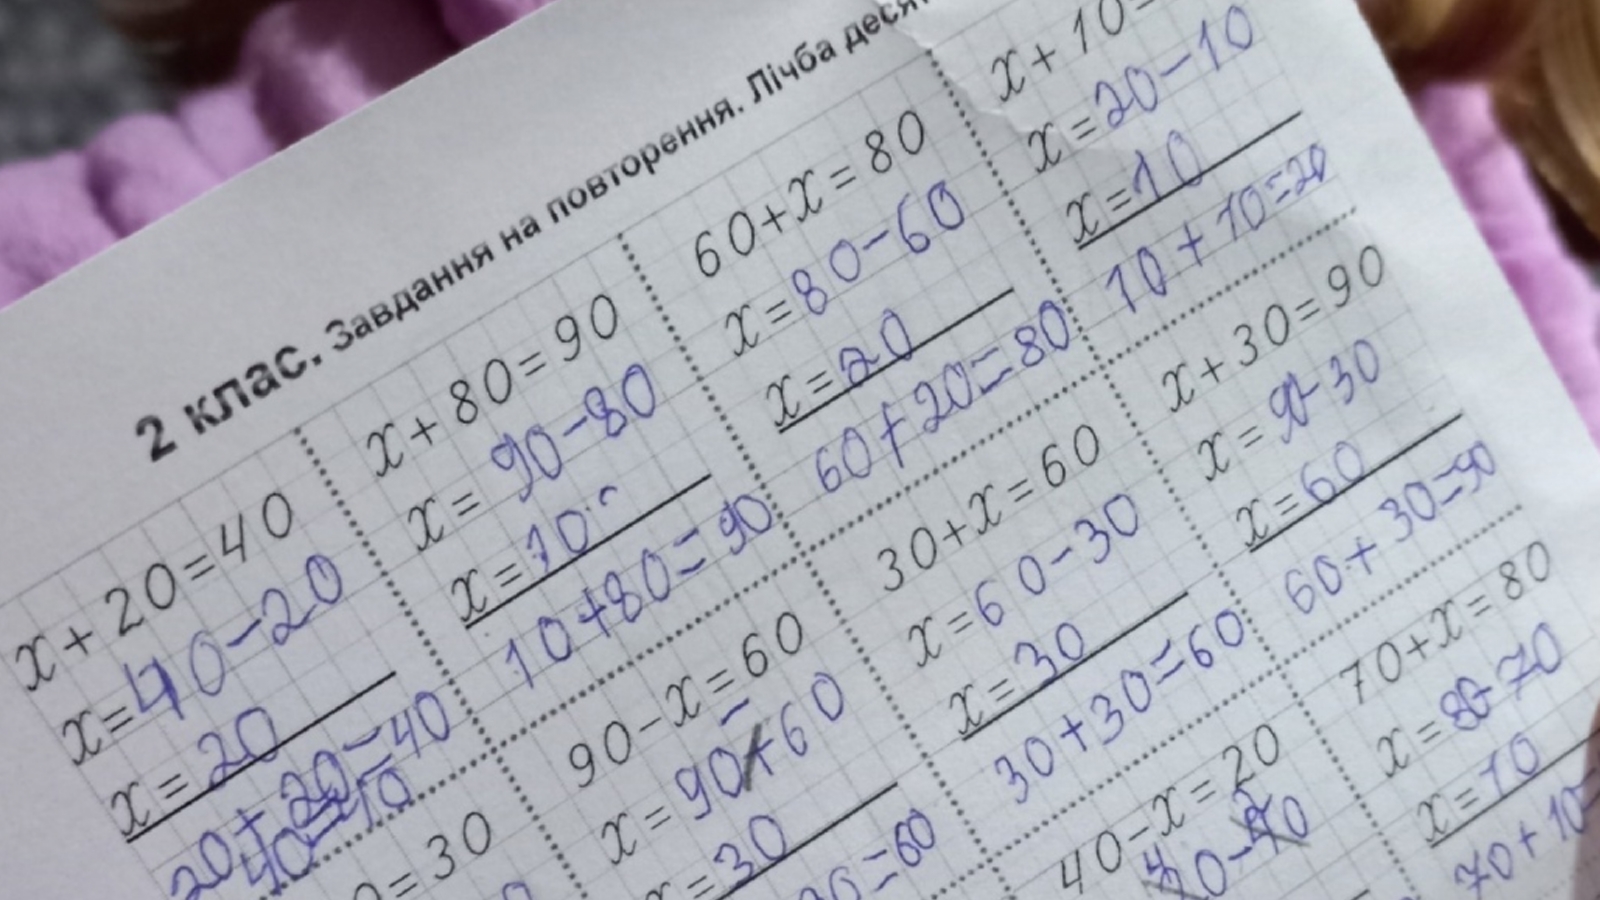 2 клас. Завдання на повторення. Лічба
x + 20 = 40
x = 40 - 20
x = 20
20 + 20 = 40
40 = 40
x + 80 = 90
x = 90 - 80
x = 10
10 + 80 = 90
60 + x = 80
x = 80 - 60
x = 20
60 + 20 = 80
x + 10 =
x = 20 - 10
x = 10
10 + 10 = 20
0 = 30
90 - x = 60
x = 90 - 60
x = 30
30 + x = 60
x = 60 - 30
x = 30
30 + 30 = 60
x + 30 = 90
x = 90 - 30
x = 60
60 + 30 = 90
40 - x = 20
70 + x = 80
x = 80 - 70
x = 10
70 + 10 =